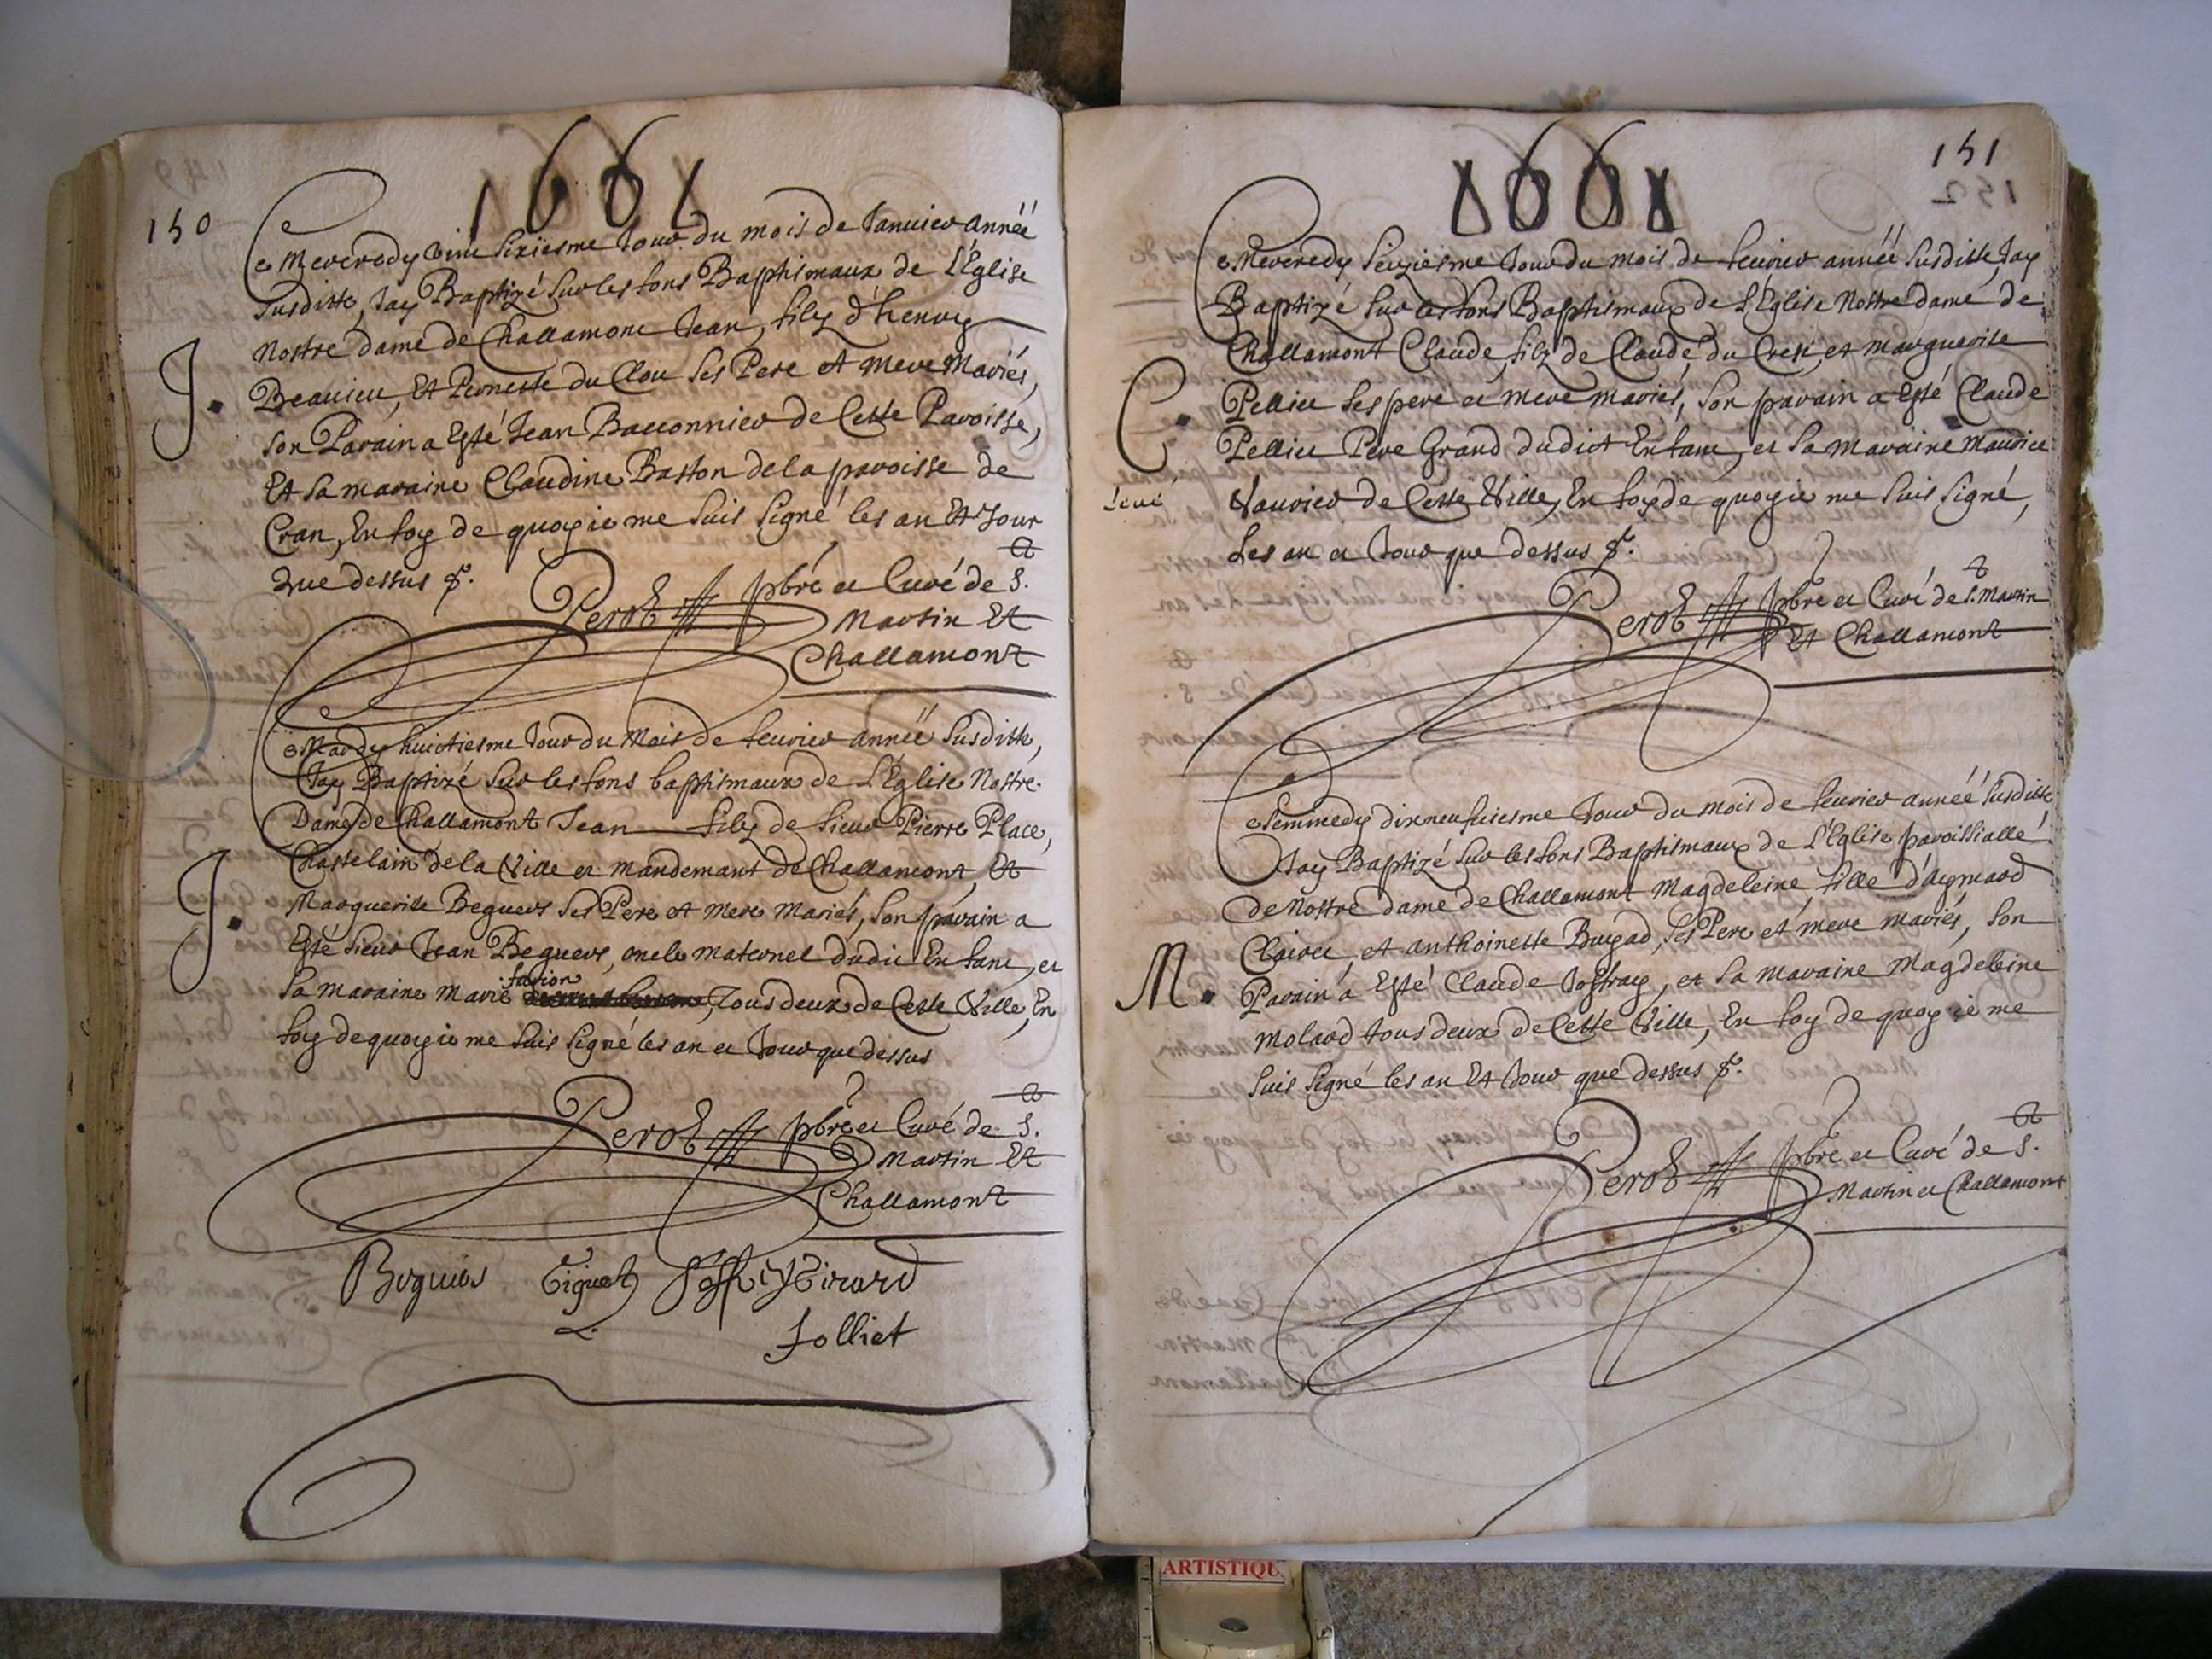 1661
150
Ce Mercredy vint sixiesme Jour du mois de Januier année
susditte, Jay Baptizé sur les fons Baptismaux de L'Église
Nostre dame de Challamont Jean, filz d'henrig
J. Beauieu, Et Peonette du Clou ses Pere et mere Mariés,
son Parain a Esté Jean Bauonnier de Cette Paroisse,
Et sa maraine Claudine Baston de la paroisse de
Cran, En foy de quoy ie me suis signé les an Et Jour
Que dessus &.
Perot pbre et Curé de S.t
Martin Et
Challamont
Ce Mardy huictiesme Jour du Mois de feurier année susditte,
Jay Baptizé sur les fons baptismaux de L'Église Nostre
Dame de Challamont Jean filz de sieur Pierre Place,
Chastelain de la Ville et mandemant de Challamont, Et
J. Marguerite Beguers ses Pere et Mere Mariés, son parain a
Esté sieur Jean Beguers, oncle maternel dudit Enfant, et
sa maraine Marie , Tous deux de Cette Ville, En
foy de quoy ie me suis signé les an et Jour que dessus
Perot pbre et Curé de S.t
Martin Et
Challamont
Beguers
Jolliet
1661
151
Ce Mercredy seiziesme Jour du mois de feurier année susditte, Jay
Baptizé sur les fons Baptismaux de L'Église Nostre dame de
Challamont Claude, filz de Claude du Crest, et marguerite
C. Pellieu ses pere et mere mariés, son parain a Esté Claude
Pellieu Pere Grand dudict Enfant, et sa maraine Maurice
Vaurier de Cette Ville, En foy de quoy ie me suis signé,
Les an et Jour que dessus &.
Perot pbre et Curé de S.t Martin
Et Challamont
Ce semmedy dixneufuiesme Jour du mois de feurier année susditte
Jay Baptizé sur les fons Baptismaux de L'Église paroissialle
de Nostre dame de Challamont Magdeleine, fille d'Aymard
Clairet, et anthoinette Bugad, ses Pere et mere mariés, son
M. Parain a Esté Claude Jostray, et sa maraine Magdeleine
Molard tous deux de Cette Ville, En foy de quoy ie me
suis signé les an Et Jour que dessus &.
Perot pbre et Curé de S.t
Martin et Challamont
ARTISTIQU